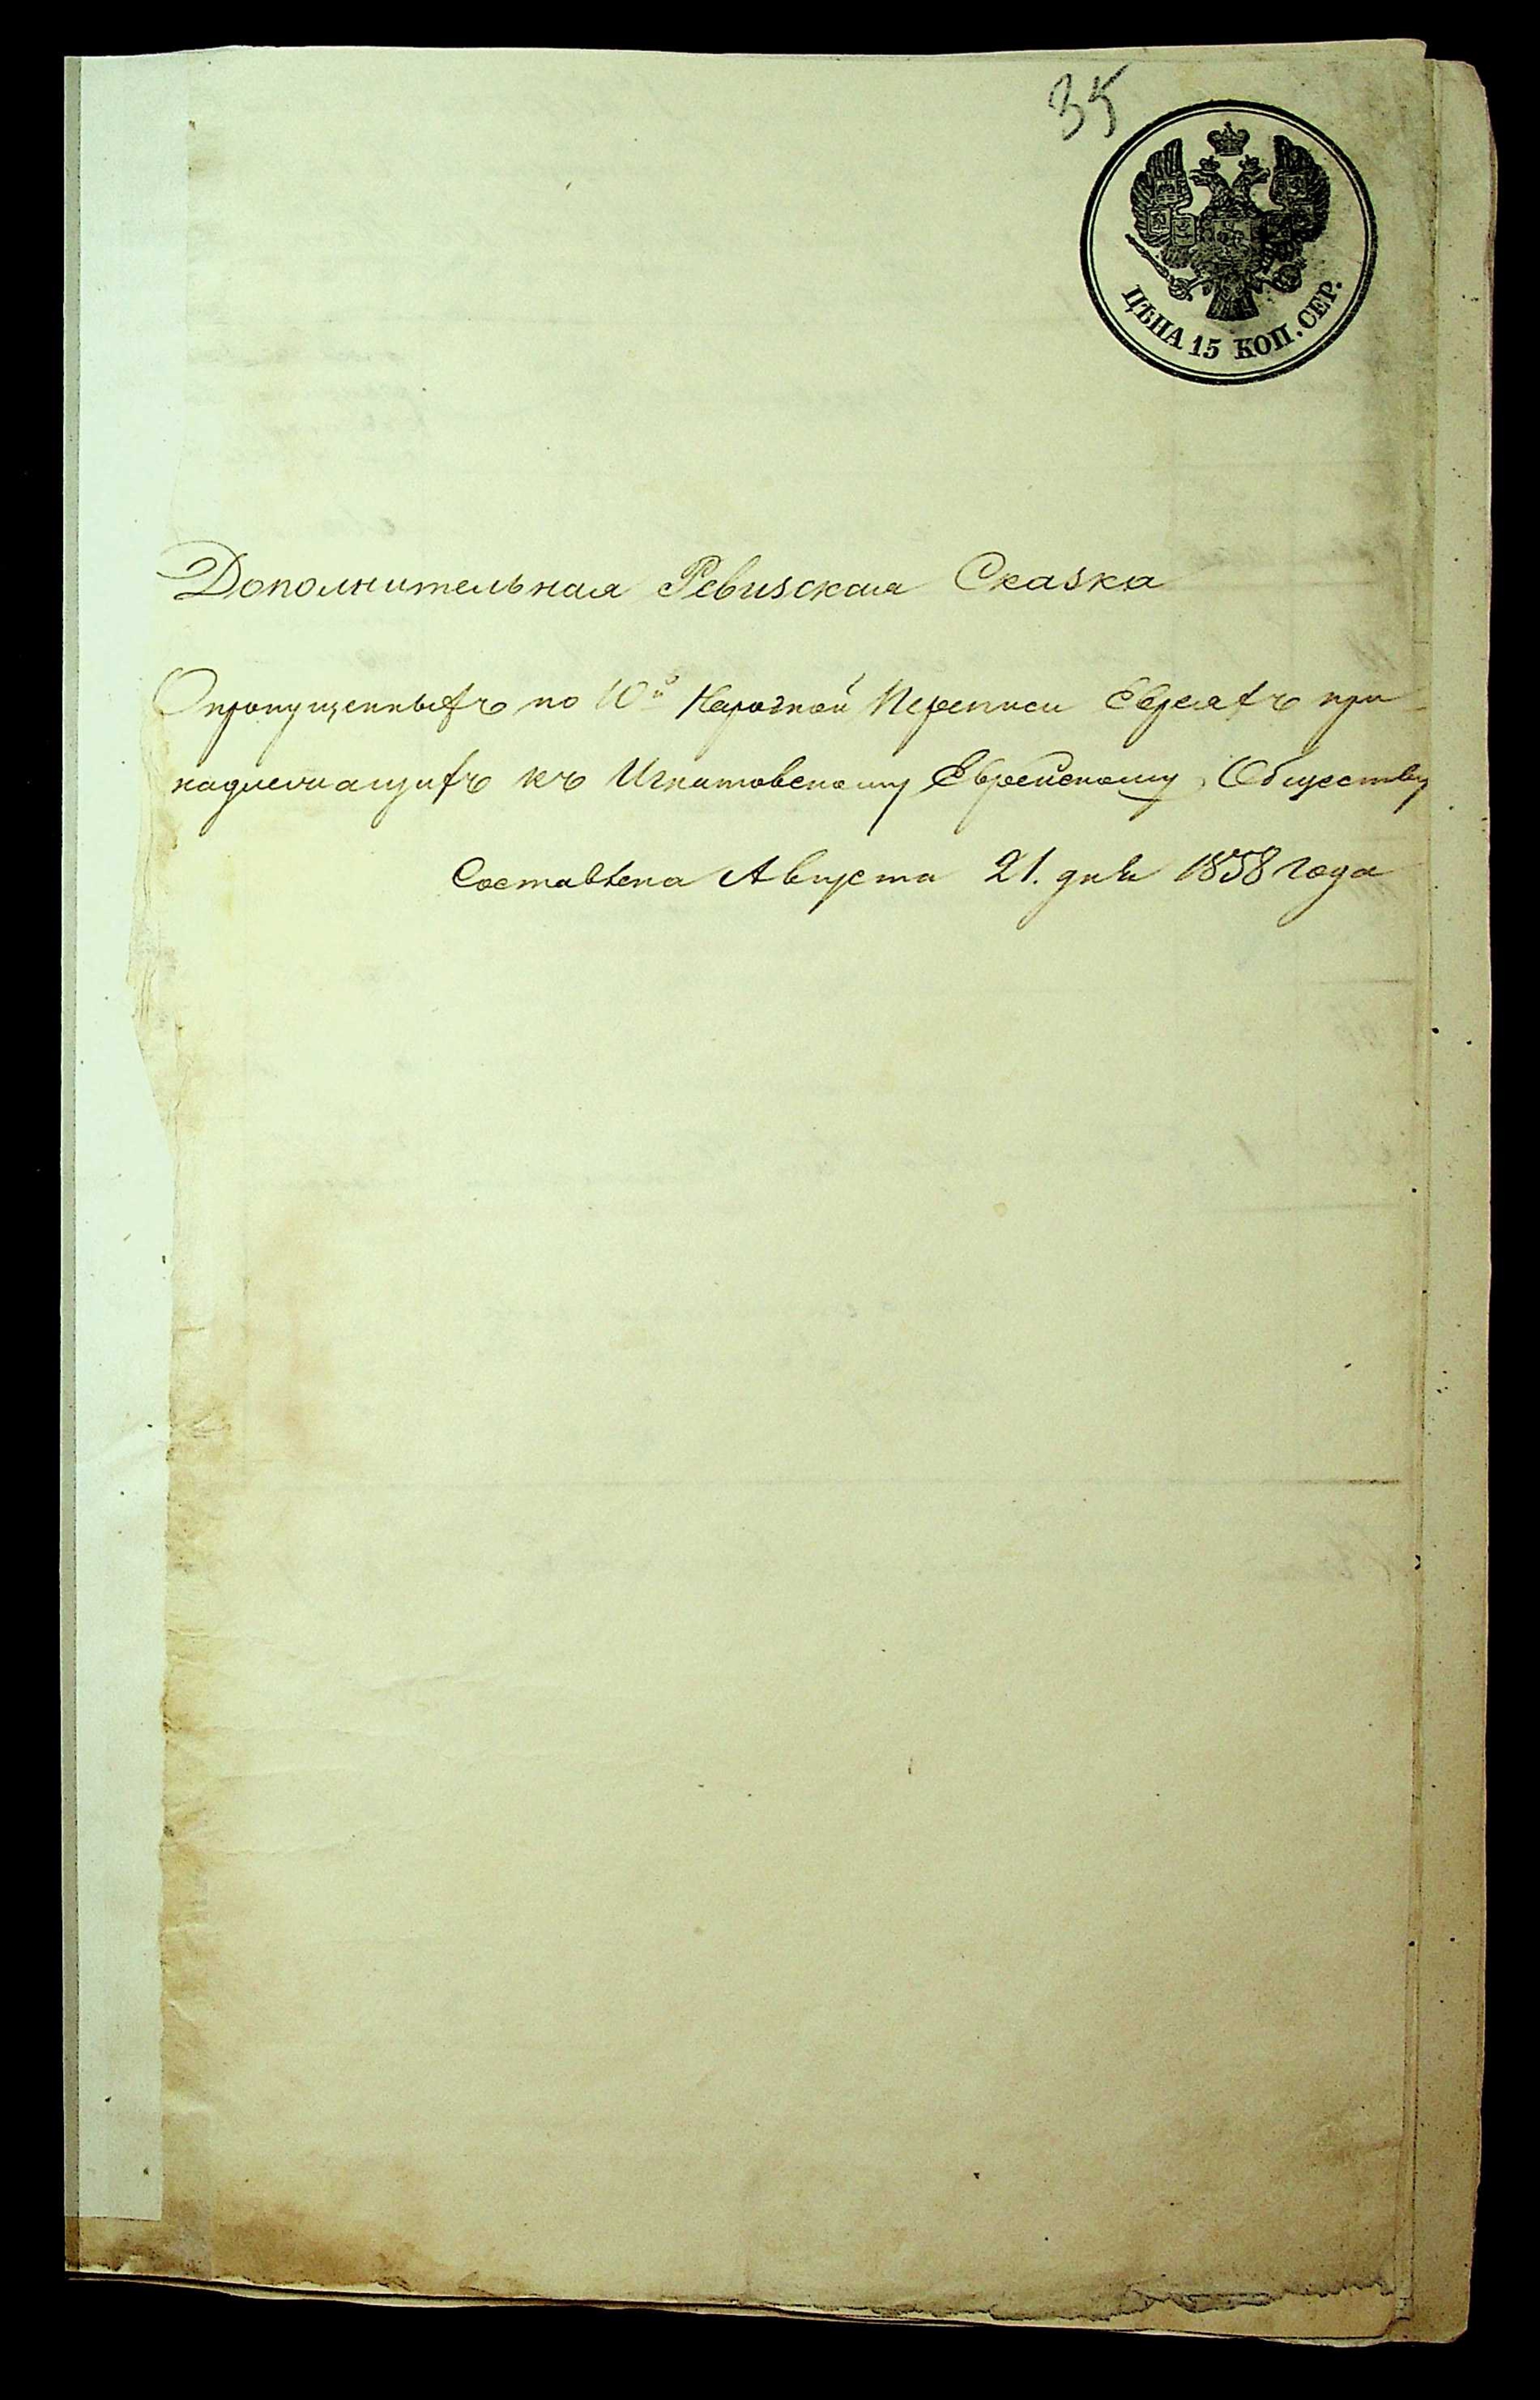 35
ЦѢНА 15 КОП. СЕР.
Дополнительная Ревизская Сказка
О пропущенныхъ по 10й Народной Переписи Евреяхъ при
надлежащихъ къ Игнатовскому Еврейскому Обществу
Составлена Августа 21. дня 1858 года